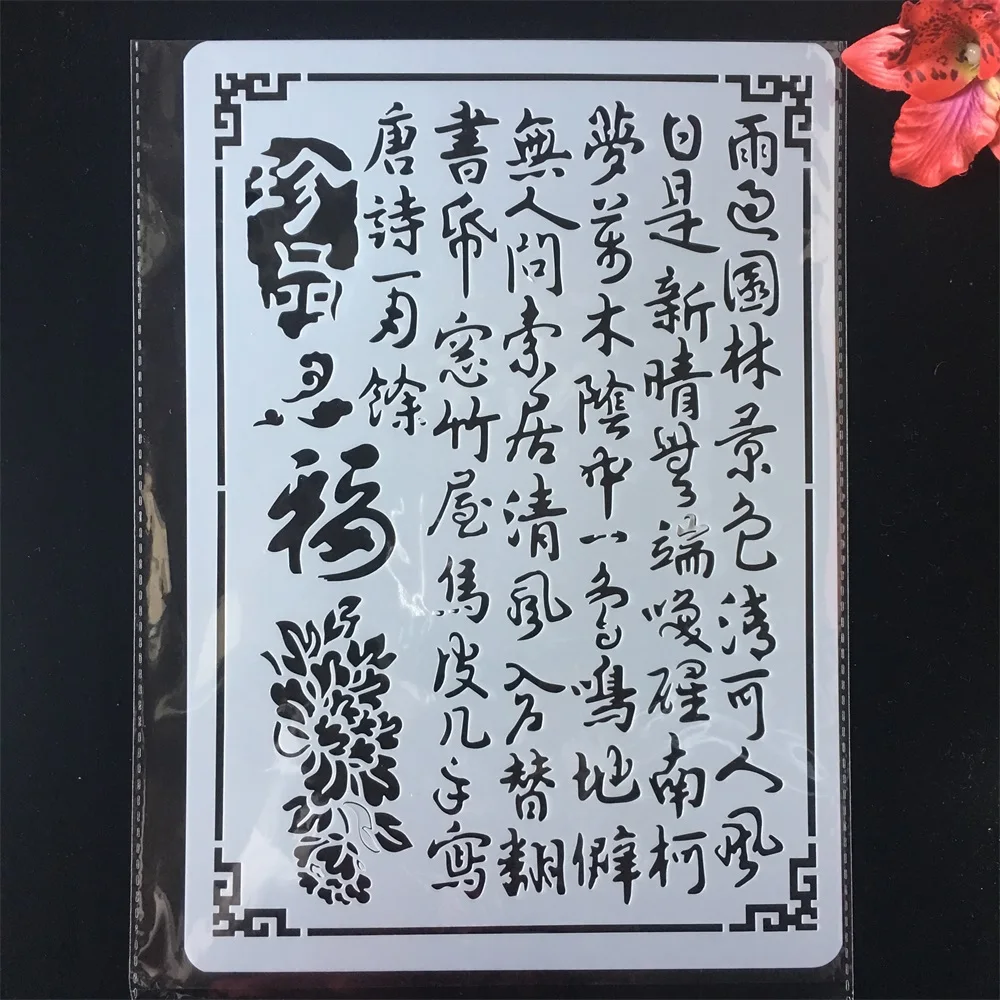 雨過園林景色清可人風
日是新晴無端喚醒南柯
夢萬木陰中一鳥鳴地僻
無人問索居清風入户替翻
書帋窓竹屋烏皮几手寫
唐詩一餘
珍品
福